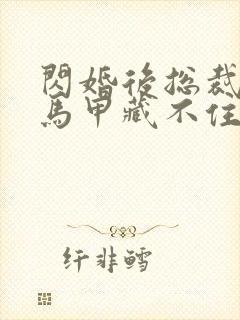 閃婚後総裁
馬甲藏不住
纤非鳕